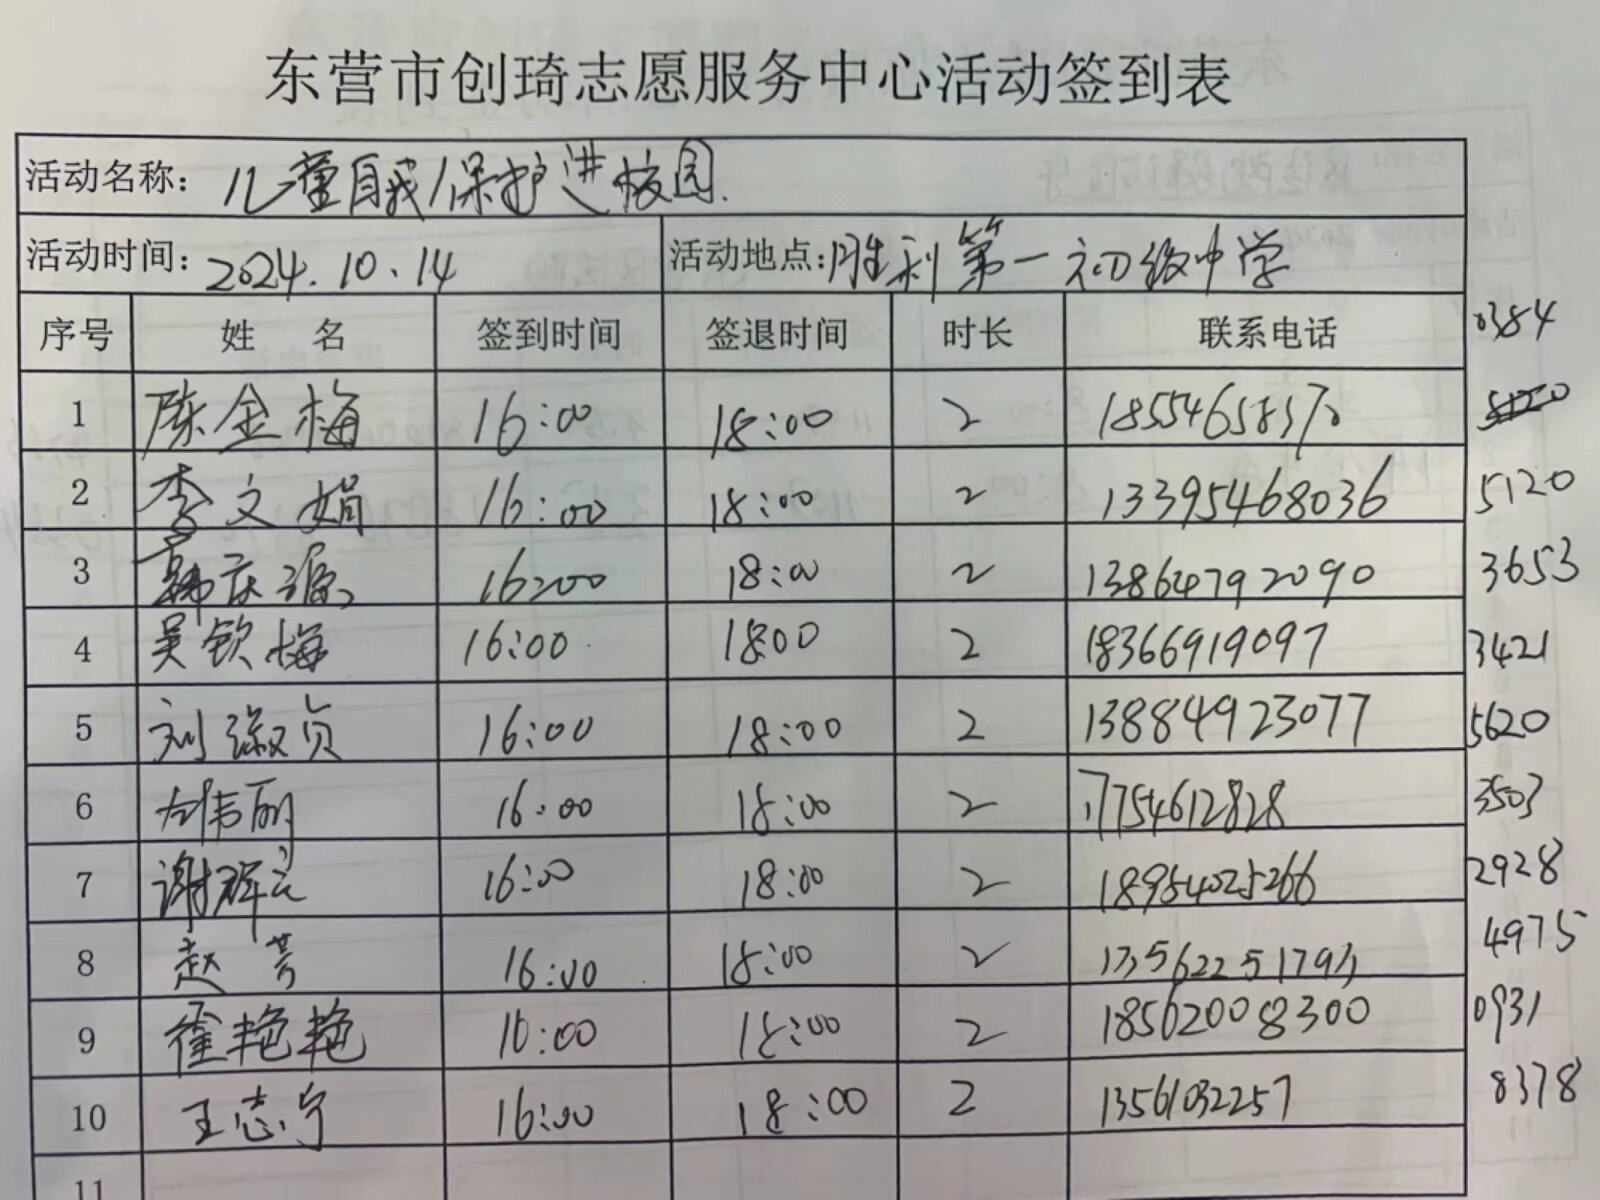 东营市创琦志愿服务中心活动签到表
活动名称: 儿童自我保护进校园.
活动时间: 2024.10.14 活动地点: 胜利第一初级中学
序号 姓 名 签到时间 签退时间 时长 联系电话 0384
1 陈金梅 16:00 18:00 2 18554658370
2 李文娟 16:00 18:00 2 13395468036 5120
3 韩庆源 16:00 18:00 2 13864792090 3653
4 吴钦梅 16:00 18:00 2 18366919097 3421
5 刘淑贞 16:00 18:00 2 13884923077 5620
6 16:00 18:00 2 17754612828 3503
7 谢辉云 16:00 18:00 2 18954025266 2928
8 赵芳 16:00 18:00 2 4975
9 霍艳艳 16:00 18:00 2 18562008300 0931
10 王志宁 16:00 18:00 2 13561032257 8378
11